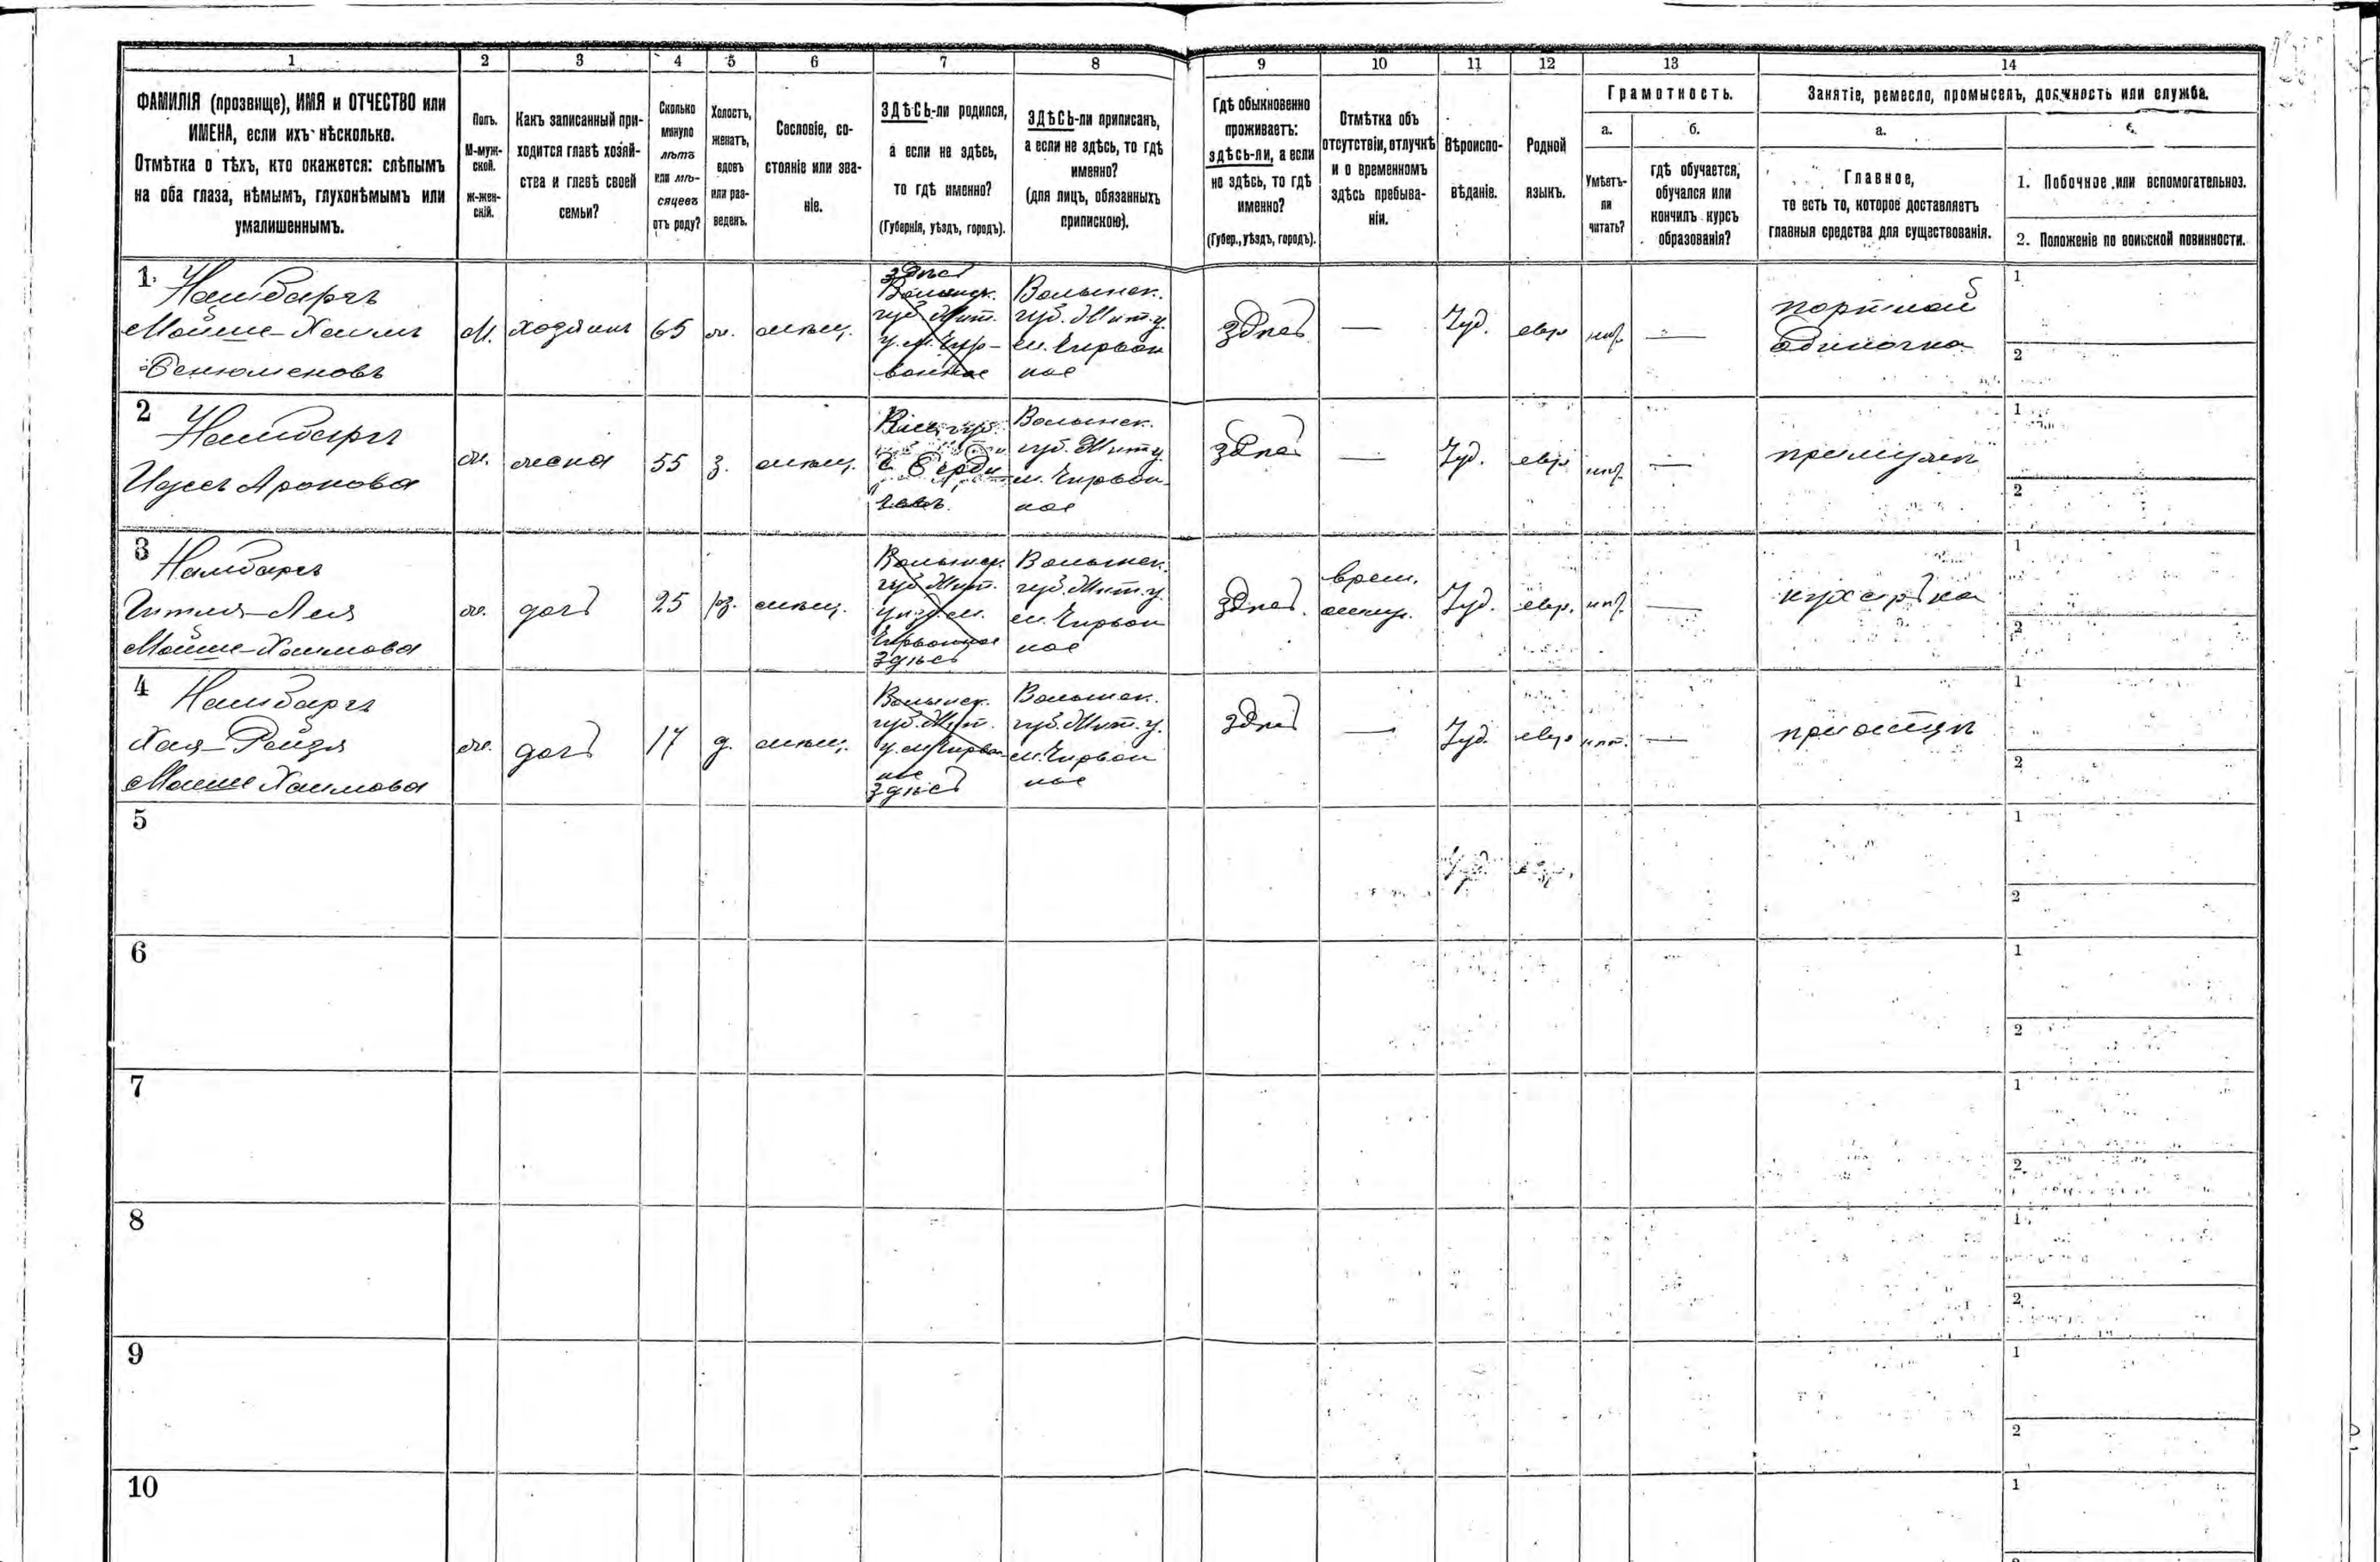 1 2 3 4 5 6 7 8 9 10 11 12 13 14
ФАМИЛІЯ (прозвище), ИМЯ и ОТЧЕСТВО или
ИМЕНА, если ихъ нѣсколько.
Отмѣтка о тѣхъ, кто окажется: слѣпымъ
на оба глаза, нѣмымъ, глухонѣмымъ или
умалишеннымъ.
Полъ.
М-муж-
ской.
ж-жен-
скій.
Какъ записанный при-
ходится главѣ хозяй-
ства и главѣ своей
семьи?
Сколько
минуло
лѣтъ
или мѣ-
сяцевъ
отъ роду?
Холостъ,
женатъ,
вдовъ
или раз-
веденъ.
Сословіе, со-
стояніе или зва-
ніе.
ЗДѢСЬ-ли родился,
а если не здѣсь,
то гдѣ именно?
(Губернія, уѣздъ, городъ).
ЗДѢСЬ-ли приписанъ,
а если не здѣсь, то гдѣ
именно?
(для лицъ, обязанныхъ
припискою).
Гдѣ обыкновенно
проживаетъ:
здѣсь-ли, а если
не здѣсь, то гдѣ
именно?
(Губер., уѣздъ, городъ).
Отмѣтка объ
отсутствіи, отлучкѣ
и о временномъ
здѣсь пребыва-
ніи.
Вѣроиспо-
вѣданіе.
Родной
языкъ.
Грамотность.
а.
Умѣетъ-
ли
читать?
б.
гдѣ обучается,
обучался или
кончилъ курсъ
образованія?
Занятіе, ремесло, промыселъ, должность или служба.
а.
Главное,
то есть то, которое доставляетъ
главныя средства для существованія.
б.
1. Побочное или вспомогательное.
2. Положеніе по воинской повинности.
1
Мойше-Хаимъ
М.
хозяинъ
65
ж.
мѣщ.
здѣсь
Волынск.
губ. Жит.
у. м. Чир-
вонное
Волынск.
губ. Жит. у.
м. Чирвон
ное
здѣсь
—
Іуд.
евр
—
портной
одиночка
1
2
2
Аронова
ж.
жена
55
з.
мѣщ.
Волынск.
губ. Жит у.
м. Чирвон-
ное
здѣсь
—
Іуд.
евр
—
1
2
3
Мойше-Хаимова
ж.
дочь
25
мѣщ.
Волынск.
губ. Жит.
Чирвонное
здѣсь
Волынск.
губ. Жит. у.
м. Чирвон
ное
здѣсь.
врем.
Іуд.
евр.
—
кухарка
1
2
4
Хая-Рейзя
Мойше Хаимова
ж.
дочь
17
д.
мѣщ.
Волынск.
губ. Жит.
у. м. Чирвон-
ное
здѣсь
Волынск.
губ. Жит. у.
м. Чирвон
ное
здѣсь
—
Іуд.
евр
—
1
2
5
1
2
6
1
2
7
1
2
8
1
2
9
1
2
10
1